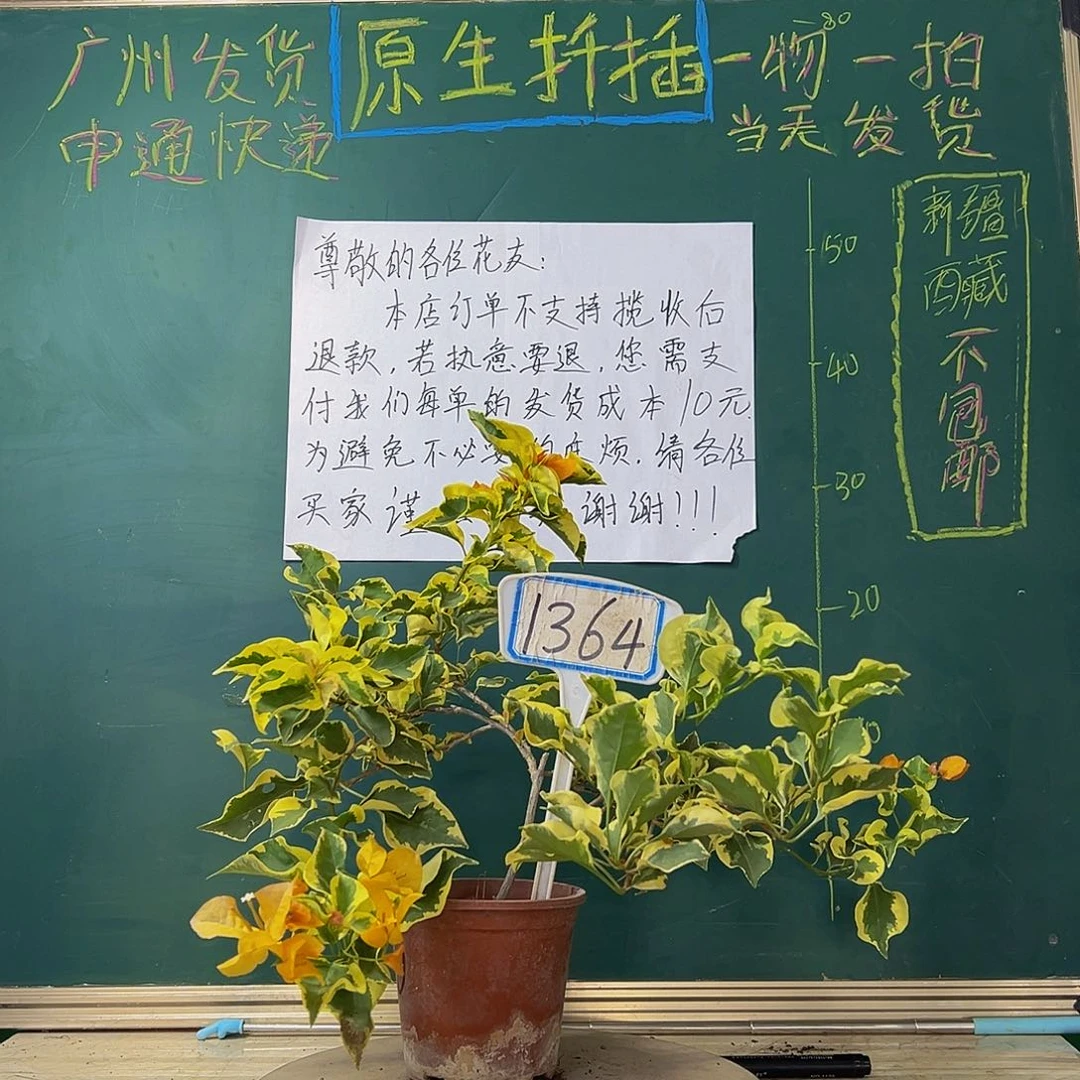 广州发货
申通快递
原生扦插
一物一拍
当天发货
新疆
西藏
不包邮
50
40
30
20
尊敬的各位花友:
本店订单不支持揽收后
退款,若执意要退,您需支
付我们每单的发货成本10元.
为避免不必要的麻烦.请各位
买家谨 谢谢!!!
1364